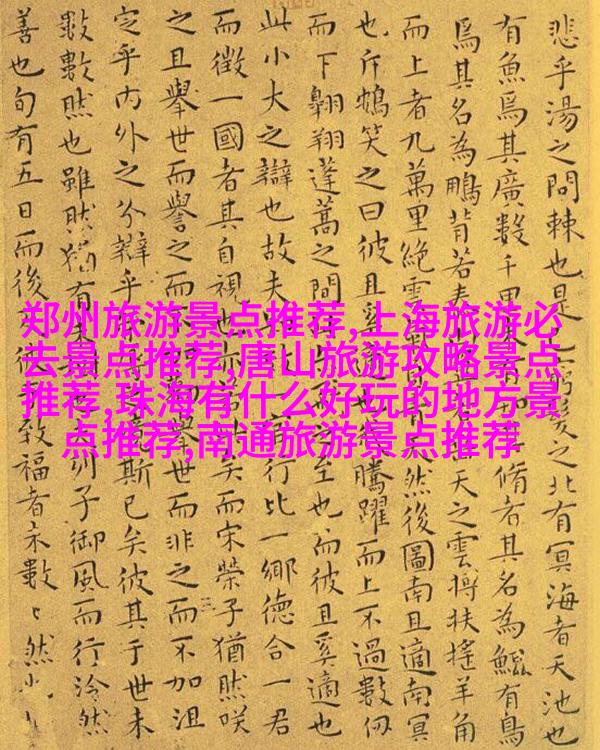 悲乎湯之問棘也是已窮髮之北有冥海者天池也
有魚焉其廣數千里未有知其脩者其名為鯤有鳥
焉其名為鵬背若泰天之雲摶扶搖羊角
而上者九萬里絕雲氣然後圖南且適南冥
也斥鴳笑之曰彼且奚適也騰躍而上不過數仞
而下翱翔蓬蒿之間之至也而彼且奚適也
此小大之辯也故夫官行比一鄉德合一君
而徵一國者其自視也矣而宋榮子猶然咲
之且舉世而譽之而不舉世而非之而不加沮
定乎內外之分辯乎斯已矣彼其于世未
數數然也雖然猶有未列子御風而行泠然
善也旬有五日而後致福者未數〻然
郑州旅游景点推荐,上海旅游必
去景点推荐,唐山旅游攻略景点
推荐,珠海有什么好玩的地方景
点推荐,南通旅游景点推荐